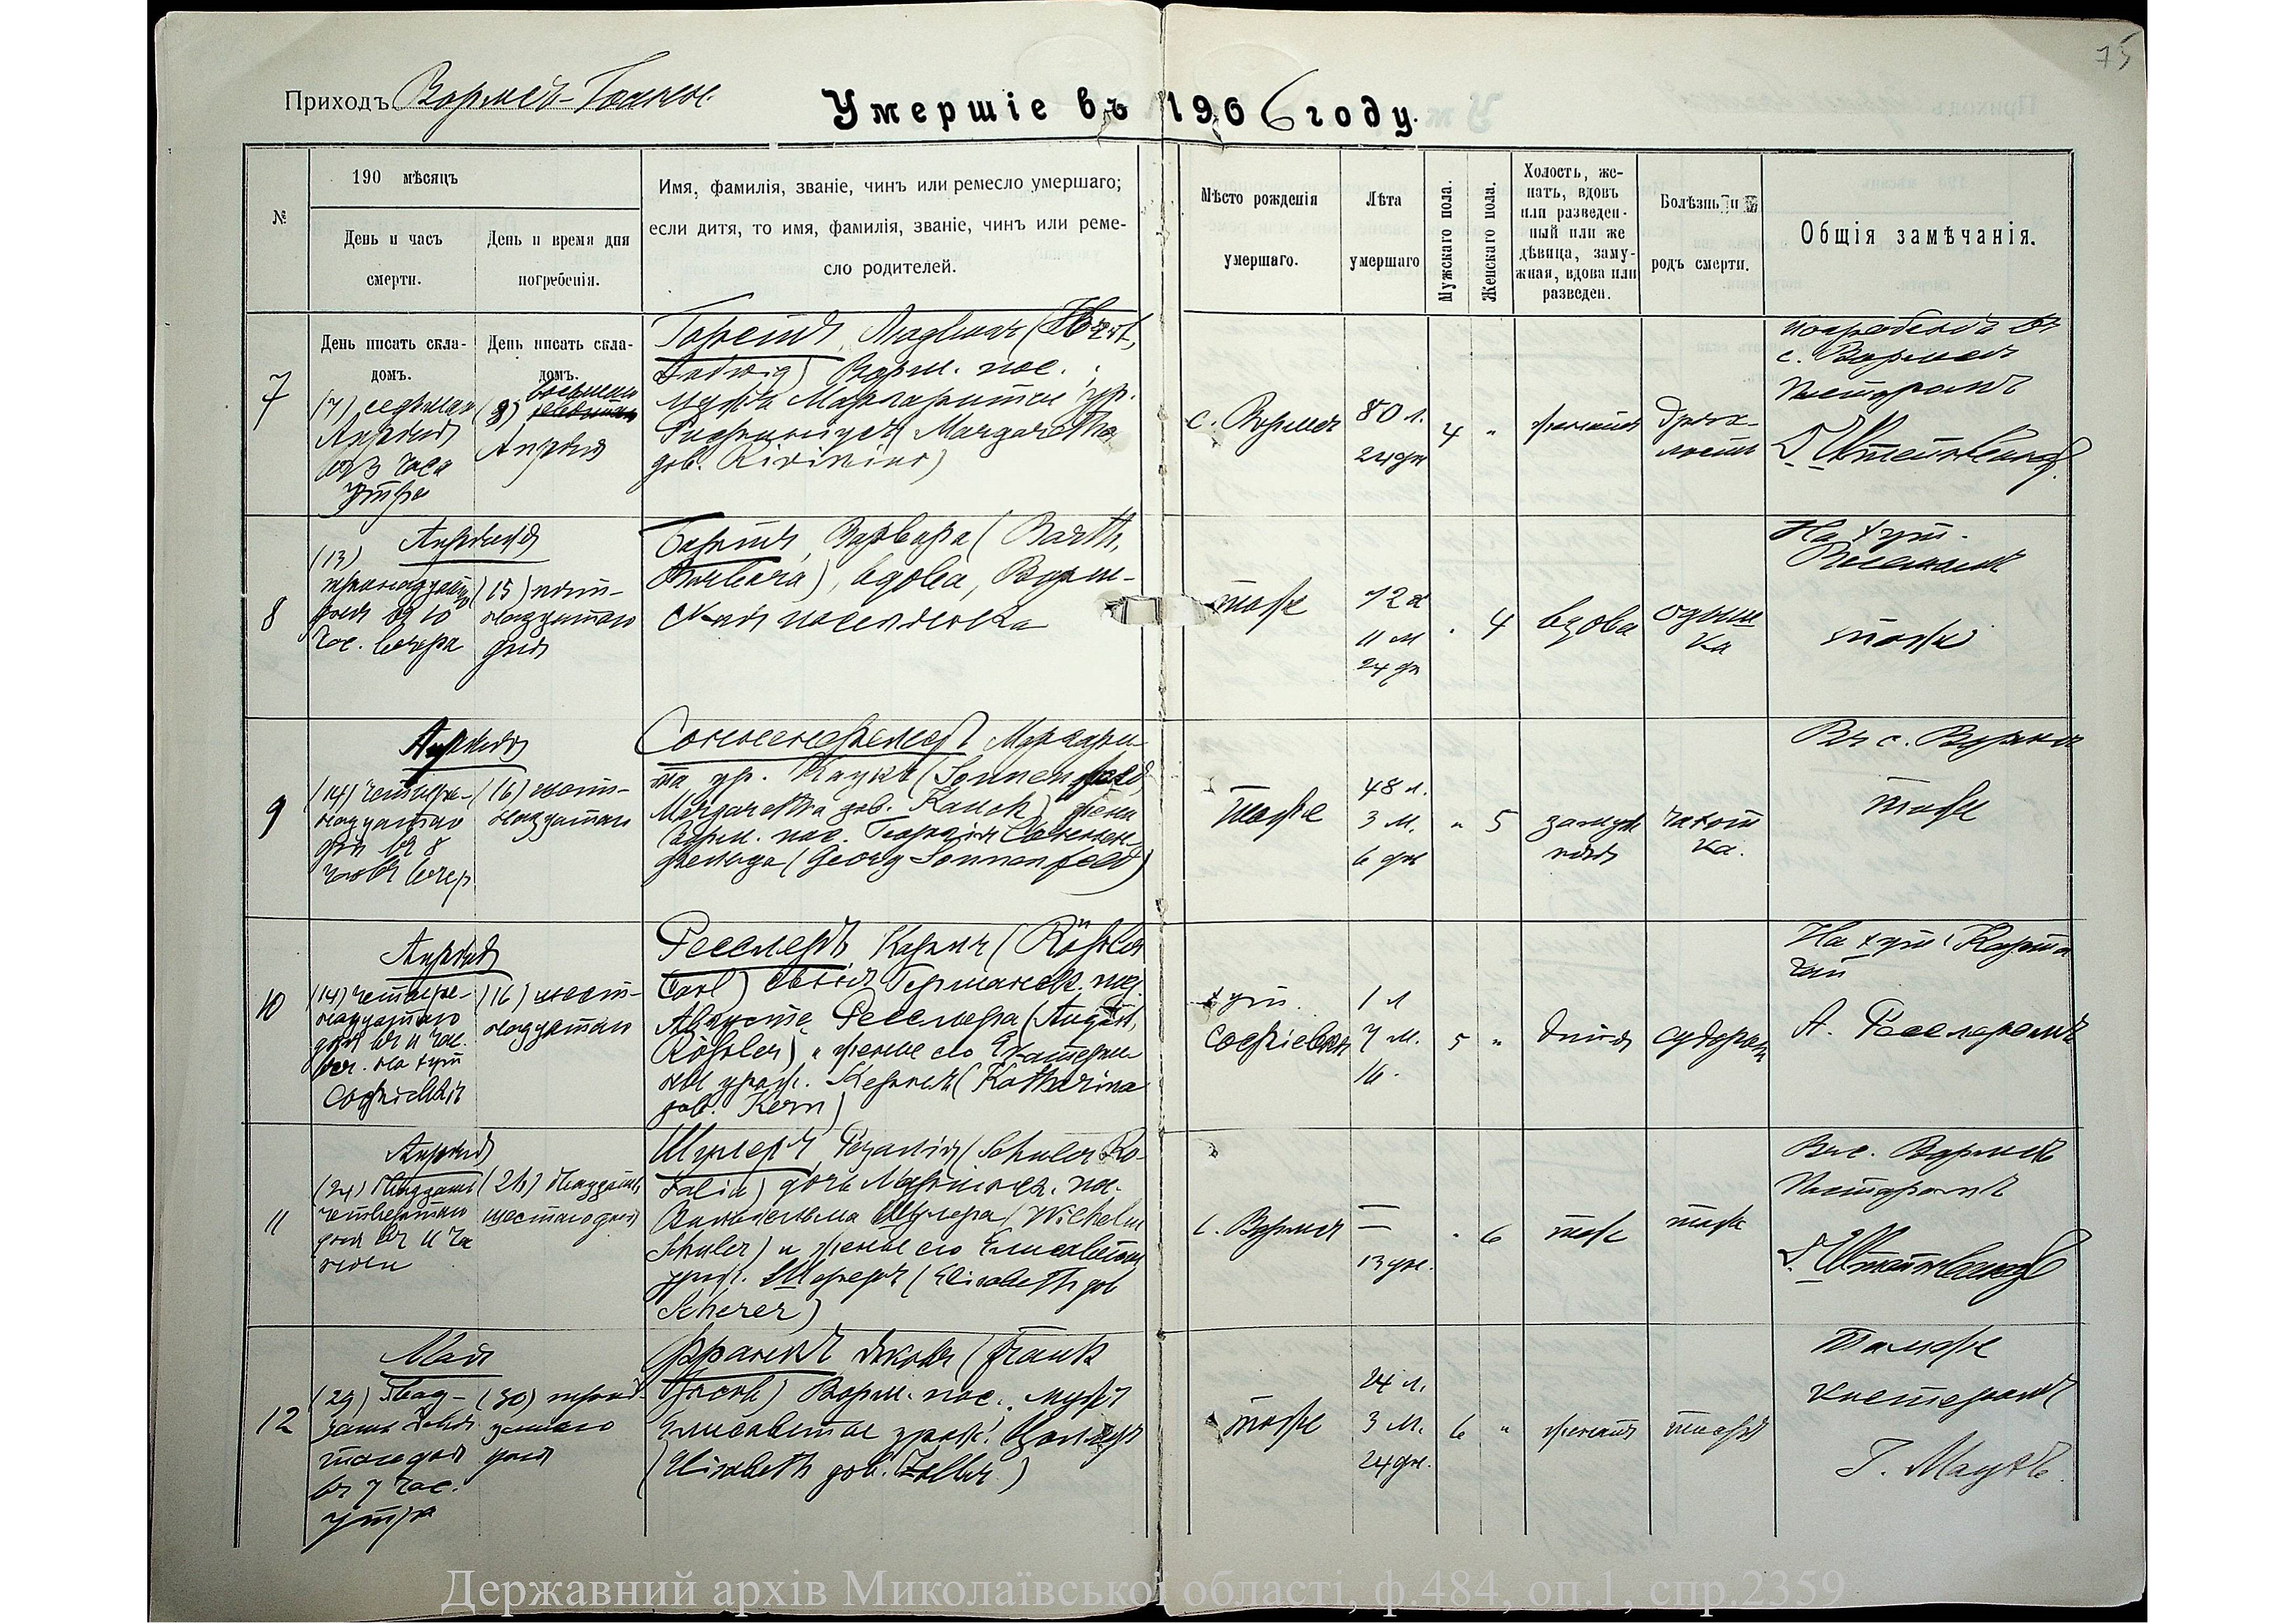 75
Приходъ Вормсъ-
Умершіе въ 1906 году.
№
190 мѣсяцъ
День и часъ
смерти.
День и время дня
погребенія.
Имя, фамилія, званіе, чинъ или ремесло умершаго;
если дитя, то имя, фамилія, званіе, чинъ или реме-
сло родителей.
Мѣсто рожденія
умершаго.
Лѣта
умершаго
Мужскаго пола.
Женскаго пола.
Холостъ, же-
натъ, вдовъ
или разведен-
ный или же
дѣвица, заму-
жняя, вдова или
разведен.
Болѣзнь и
родъ смерти.
Общія замѣчанія.
День писать скла-
домъ.
День писать скла-
домъ.
7
(7) седьмая
Апрѣля
въ 3 часа
утра
(8) восьмая
Апрѣля
Людвигъ
Ludwig) Ворм. пос.
мужъ Маргариты ур.
(Margaretha
geb. Rivinius)
с. Вормсъ
80 л.
24 дн
4
"
женатъ
дрях-
лость
погребенъ въ
с. Вормсъ
Пасторомъ
8
Апрѣля
(13)
10
час. вечера
(15) пят-
надцатаго
дня
Бартъ, Варвара (Barth,
Barbara), вдова, Ворм-
ская поселянка
тоже
72 л
11 м
24 дн
4
вдова
одыш
ка
На хут.
тоже
9
Апрѣля
(14) четыре-
надцатаго
дня въ 8
часовъ вечер
(16) шест-
надцатаго
Зонненфельдъ Маргари-
та ур. Каукъ (Sonnenfeld
Margaretha geb. Kauck) жена
Ворм. пос. Георгія Зоннен-
фельда (Georg Sonnenfeld)
тоже
48 л.
3 м.
6 дн
"
5
замуж
няя
чахот
ка.
Въ с. Вормсъ
тоже
10
Апрѣля
(14) четыре-
надцатаго
дня въ 11 час.
веч. на хут
Софіевкѣ
(16) шест-
надцатаго
Ресслеръ, Карлъ (Rößler
Carl) сынъ Германск. под.
Августа Ресслера (August
Rößler) и жены его Екатери-
ны урож. Кернъ (Katharina
geb. Kern)
хут.
Софіевка
1 л
7 м.
16.
5
"
дитя
судороги
На хут. Карта
А. Ресслеромъ
11
Апрѣля
(24) двадцать
четвертаго
дня въ 11 ча
(26) двадцать
шестаго дня
Шулеръ Розалія (Schuler Ro-
salia) дочь
Вильгельма Шулера (Wilhelm
Schuler) и жены его Елисаветы
урож. Шереръ (Elisabeth geb
Scherer)
с. Вормсъ
—
—
13 дн.
6
тоже
тоже
Въ с. Вормсѣ
Пасторомъ
12
Май
(29) двад-
цать девя
таго дня
въ 7 час.
утра
(30) трид-
цатаго
дня
Франкъ Яковъ (Frank
Jacob) Ворм. пос. мужъ
Елисаветы урож. Цоллеръ
(Elisabeth geb. Zoller)
тоже
24 л.
3 м.
24 дн.
6
"
женатъ
Тамже
кистеромъ
Державний архів Миколаївської області, ф.484, оп.1, спр.2359